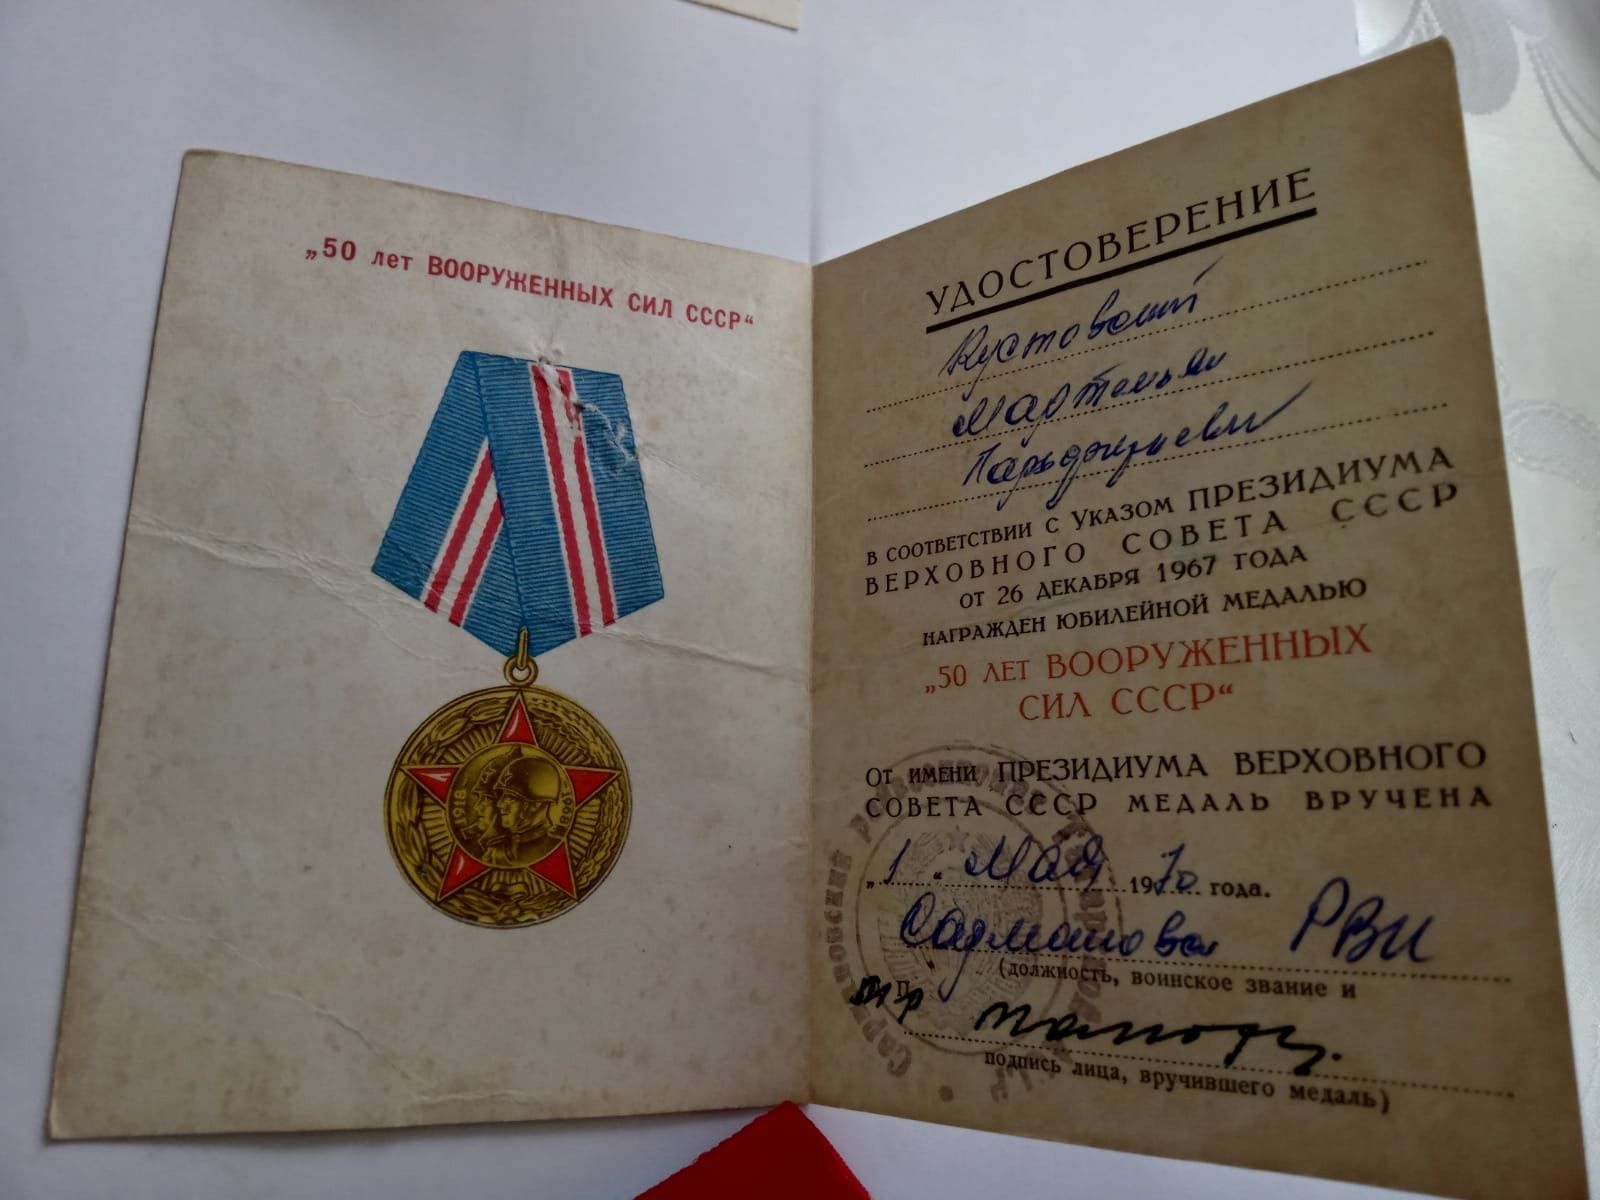 „50 лет ВООРУЖЕННЫХ СИЛ СССР“
1918
1968
УДОСТОВЕРЕНИЕ
Кустовский
Мартемьян
В СООТВЕТСТВИИ С УКАЗОМ ПРЕЗИДИУМА
ВЕРХОВНОГО СОВЕТА СССР
ОТ 26 ДЕКАБРЯ 1967 ГОДА
НАГРАЖДЕН ЮБИЛЕЙНОЙ МЕДАЛЬЮ
„50 ЛЕТ ВООРУЖЕННЫХ
СИЛ СССР“
ОТ ИМЕНИ ПРЕЗИДИУМА ВЕРХОВНОГО
СОВЕТА СССР МЕДАЛЬ ВРУЧЕНА
„1“ мая 1970 года.
РВК
(должность, воинское звание и
подпись лица, вручившего медаль)